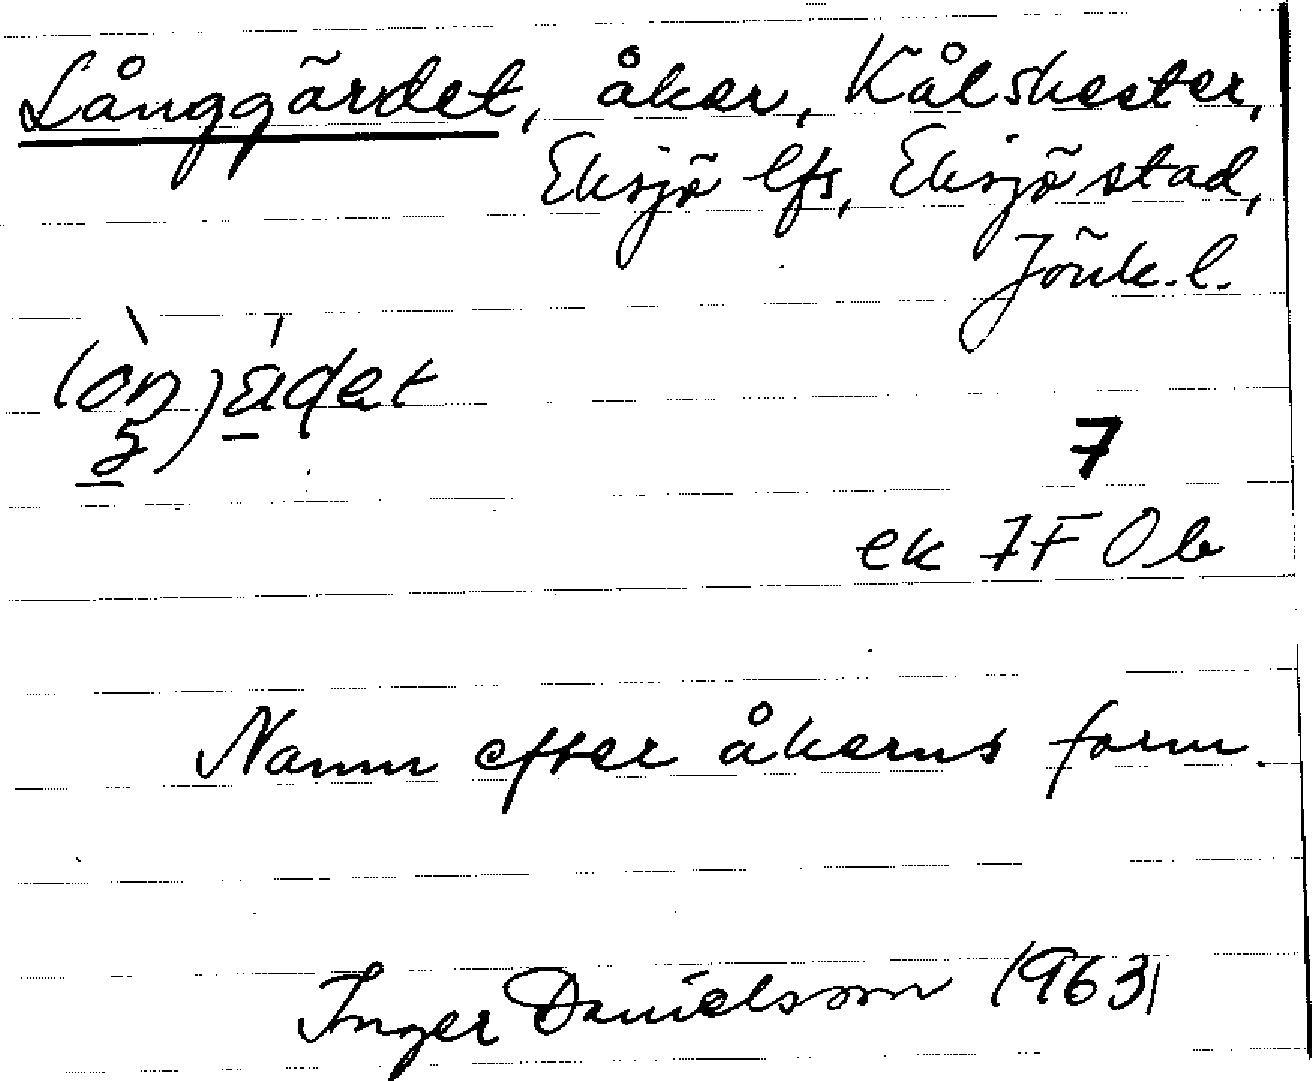 Långgärdet, åker, Kålskester,
Eksjö lfs, Eksjö stad,
Jönk. l.
7
ek 7F 0b
Namn efter åkerns form.
Inger Danielsson 1963